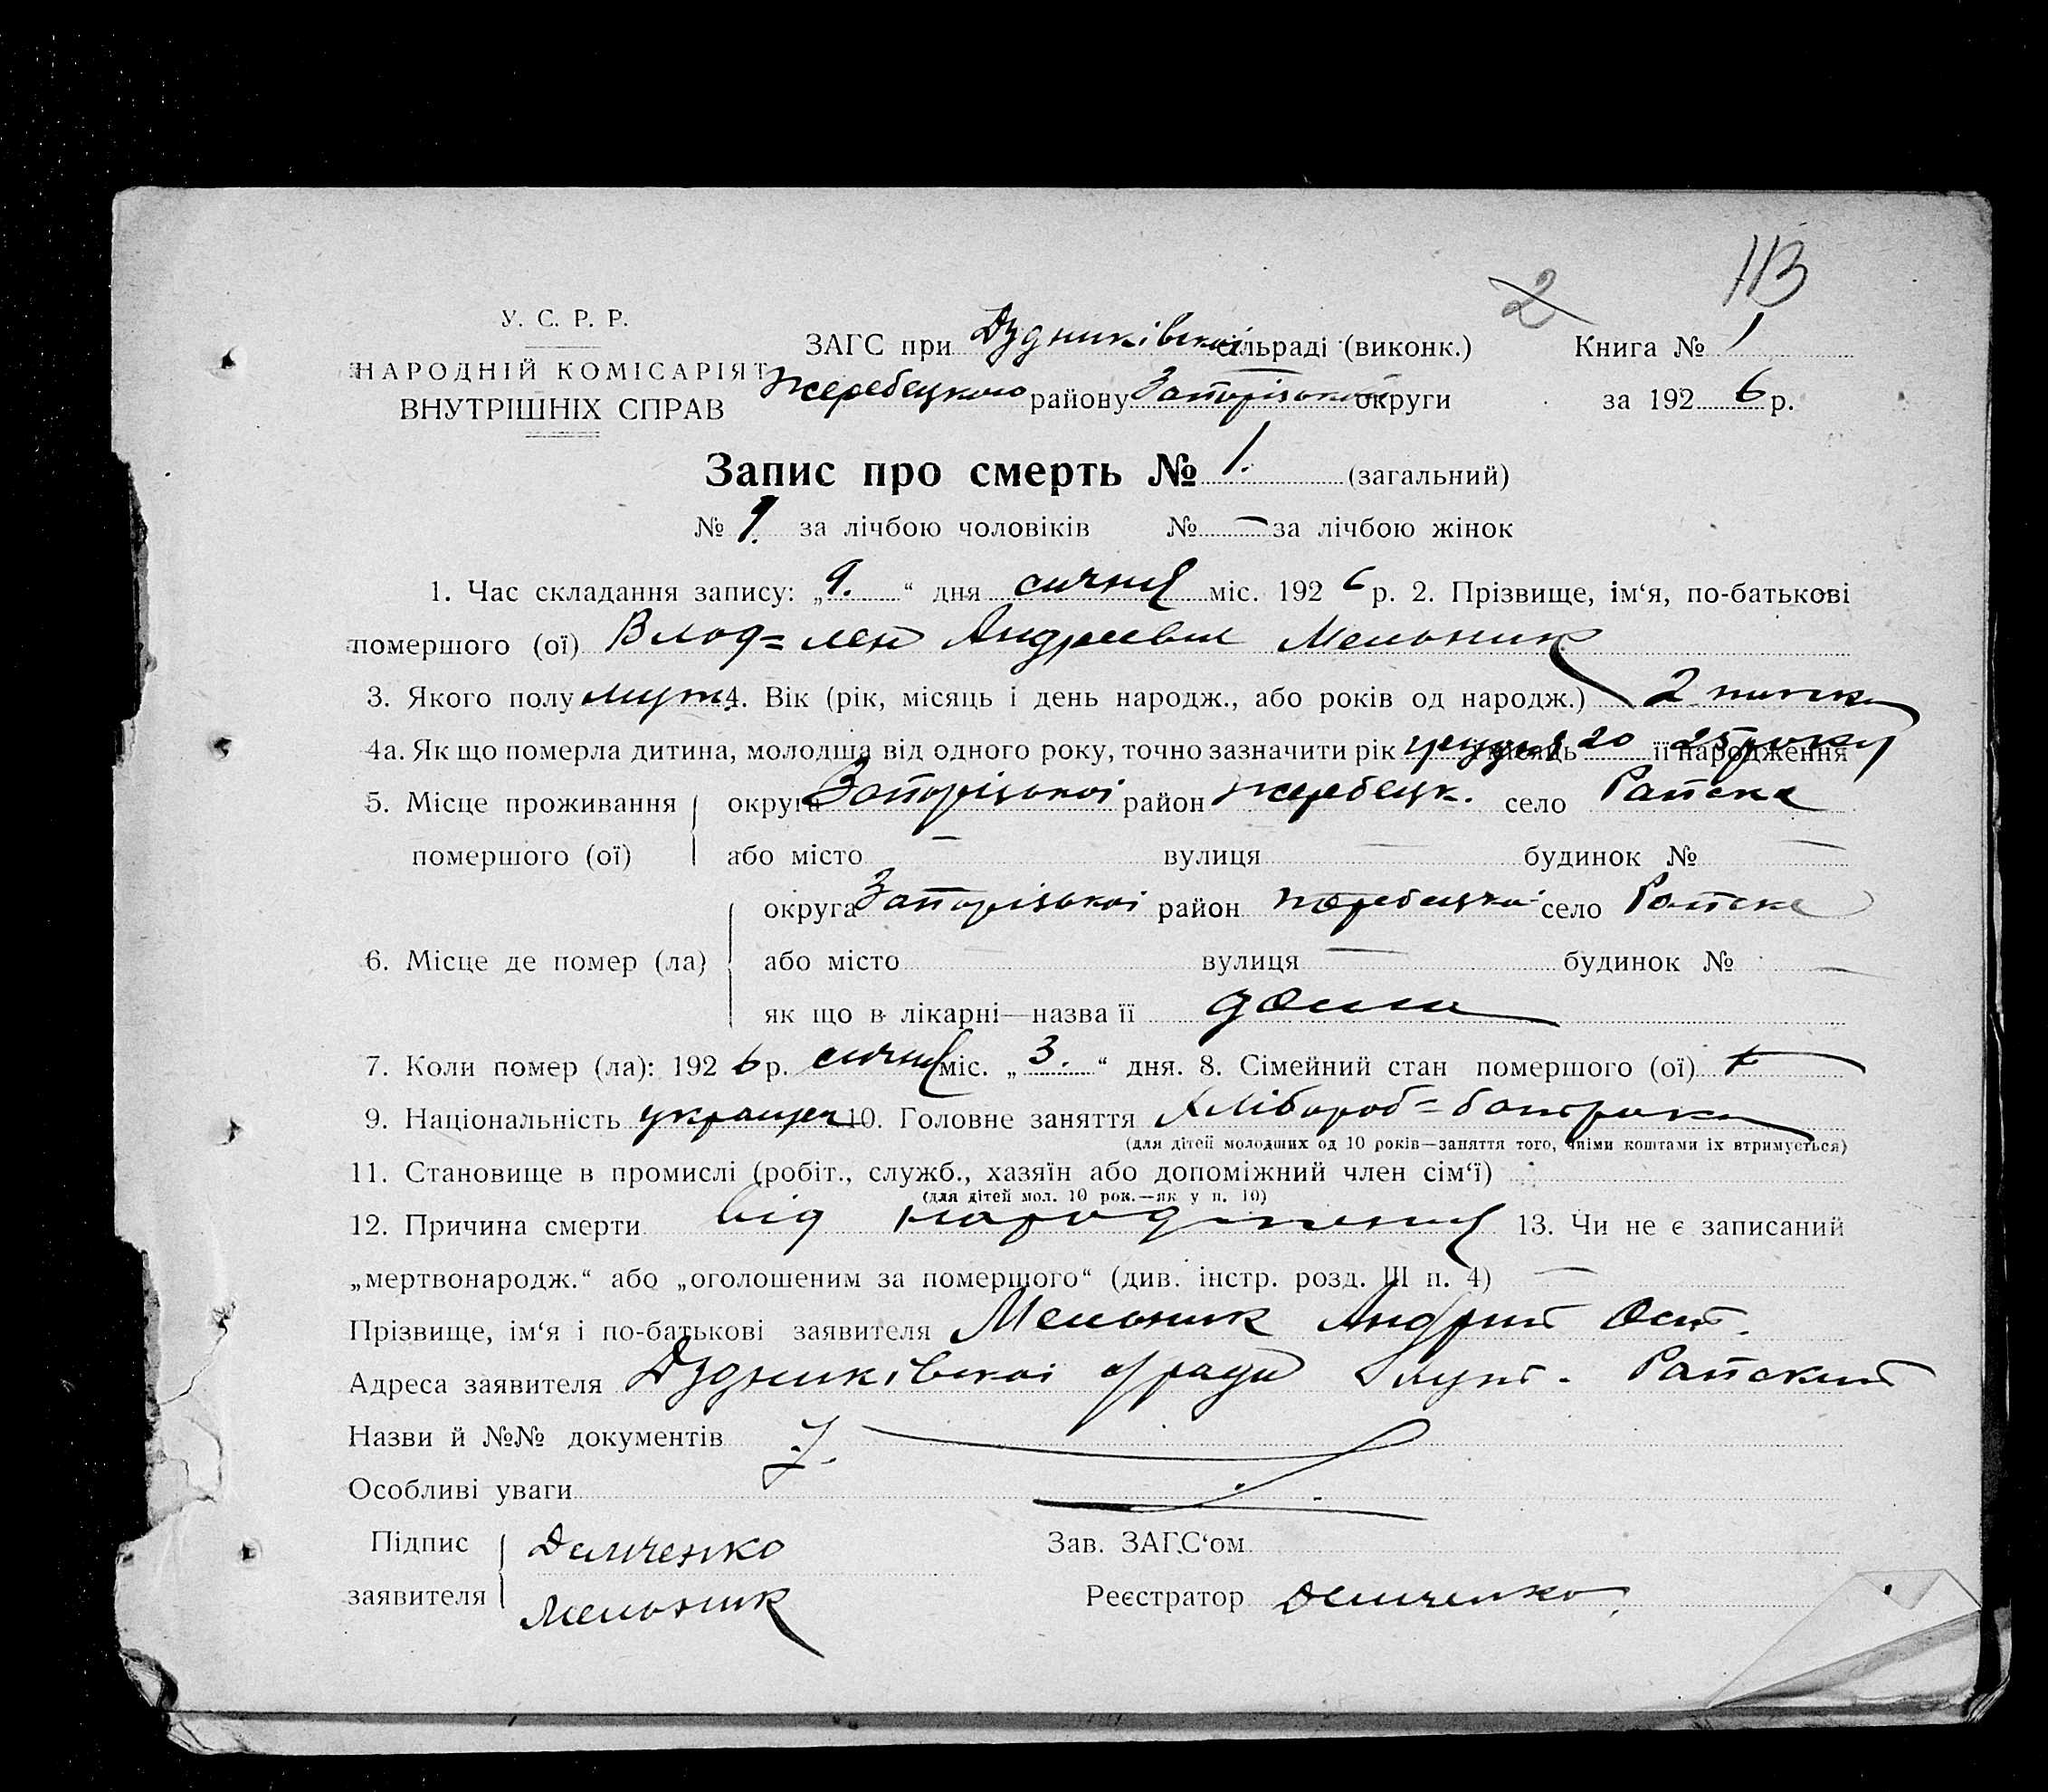 113
2
У. С. Р. Р.
НАРОДНІЙ КОМІСАРІЯТ
ВНУТРІШНІХ СПРАВ
ЗАГС при Дудниківской сільраді (виконк.)
Жеребецкого району Запорізької округи
Книга № 1
за 1926 р.
Запис про смерть № 1. (загальний)
№ 1. за лічбою чоловіків № — за лічбою жінок
1. Час складання запису: „9.“ дня січня міс. 1926 р. 2. Прізвище, ім‘я, по-батькові
помершого (ої) Влад=лен Андреевич Мельник
3. Якого полу муж. 4. Вік (рік, місяць і день народж., або років од народж.) 2
4а. Як що померла дитина, молодша від одного року, точно зазначити рік грудня місяць 20 її народження 25 року
5. Місце проживання округа Запорізької район Жеребецк. село
помершого (ої) або місто — вулиця — будинок № —
округа Запорізької район Жеребецкої село
6. Місце де помер (ла) або місто вулиця — будинок № —
як що в лікарні—назва її дома
7. Коли помер (ла): 1926 р. січня міс. „3.“ дня. 8. Сімейний стан помершого (ої)
9. Національність українец 10. Головне заняття Хлібороб=
(для дітей молодших од 10 років—заняття того, чиїми коштами їх втримується)
11. Становище в промислі (робіт., служб., хазяїн або допоміжний член сім‘ї)
(для дітей мол. 10 рок.—як у п. 10)
12. Причина смерти від народження 13. Чи не є записаний
„мертвонародж.“ або „оголошеним за помершого“ (див. інстр. розд. III п. 4) —
Прізвище, ім‘я і по-батькові заявителя Мельник Андрий Осип.
Адреса заявителя Дудниківскої с/ради
Назви й №№ документів
Особливі уваги
Підпис Демченко Зав. ЗАГС‘ом
заявителя Мельник Реєстратор Демченко